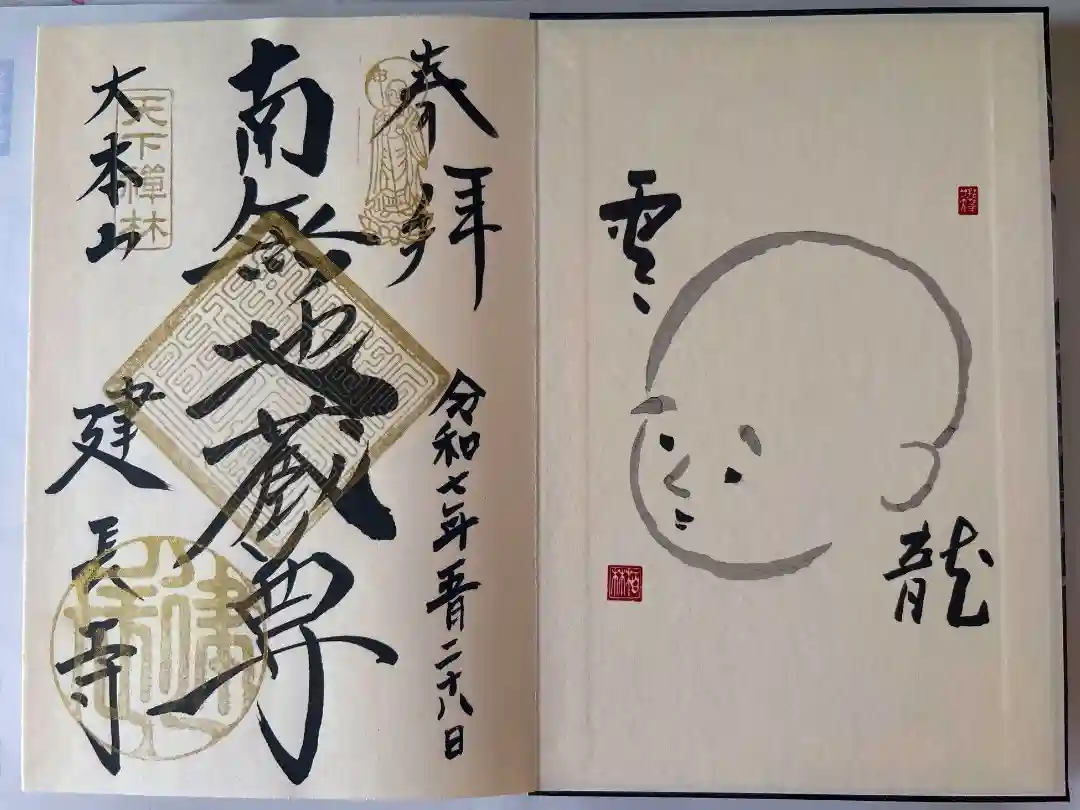 雲
龍
柏林
奉拝
令和七年五月二十八日
南無地蔵尊
天下禪林
大本山
建長寺